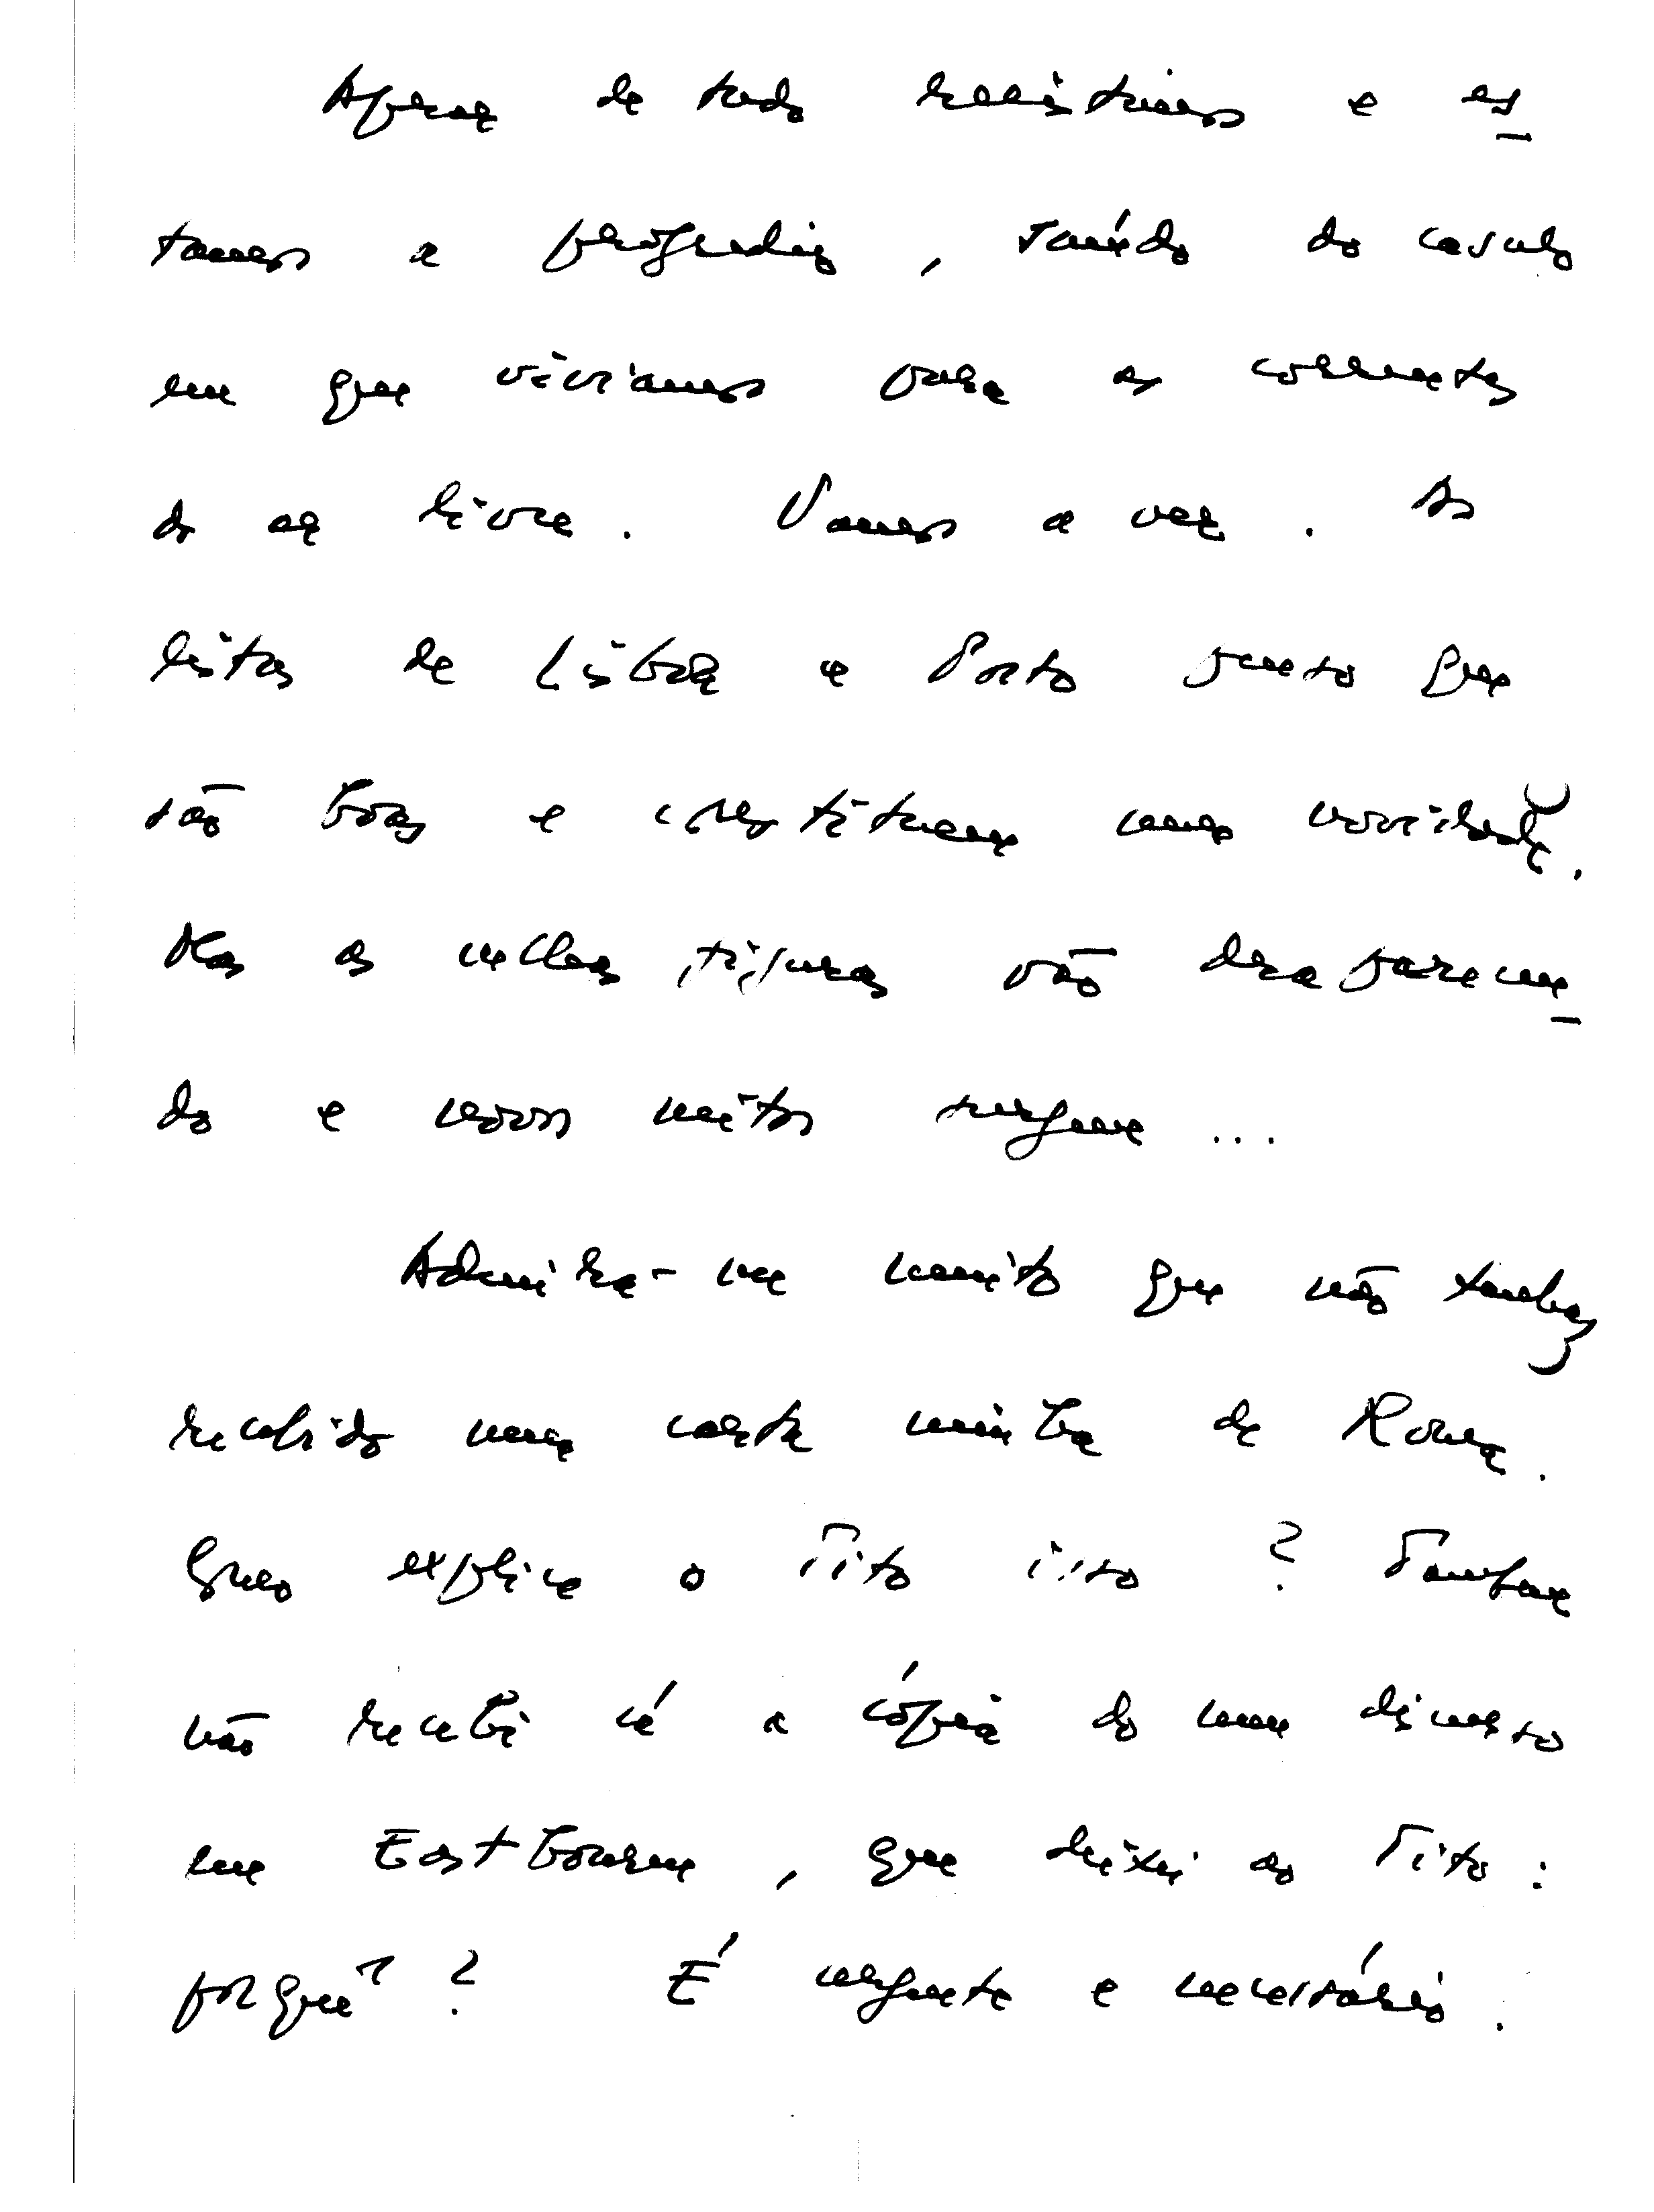 Apesar de tudo resistimos e es-
tamos a progredir, saindo do casulo
em que viviamos para as correntes
do ar livre. Vamos a ver. As
listas de Lisboa e Porto penso que
são boas e constituem uma novidade.
Mas as velhas figuras vão desaparecen-
do e novos mitos surgem...
Admira-me muito que não tenhas
recebido uma carta minha de Roma.
Como explica o Tito isso? Também
não recebi cá a cópia do meu discurso
em Eastbourne, que deixei ao Tito:
porquê? É urgente e necessário.